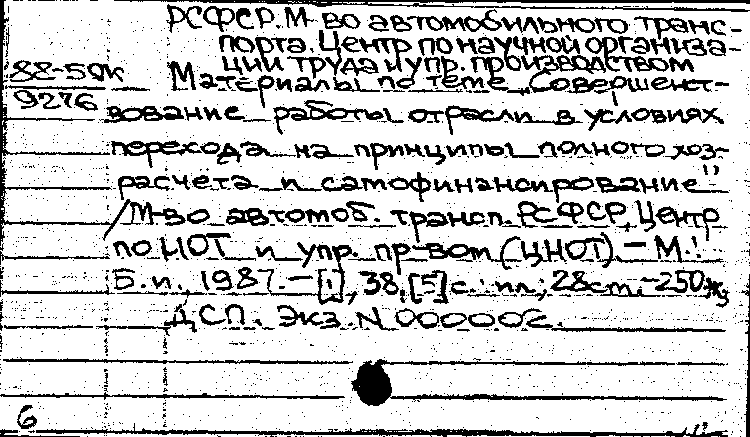 РСФСР. М-во автомобильного транс-
порта. Центр по научной организа-
ции труда и упр. производством
88-59К Материалы по теме „Совершенст-
9276 вование работы отрасли в условиях
перехода на принципы полного хоз-
расчета и самофинансирование"
/М-во автомоб. трансп. РСФСР, Центр
по НОТ и упр. пр-вом (ЦНОТ). – М.:
Б.и., 1987. – [1], 38, [5] с.: ил.; 28 см. – 250 экз
ДСП. Экз. N 000002.
6